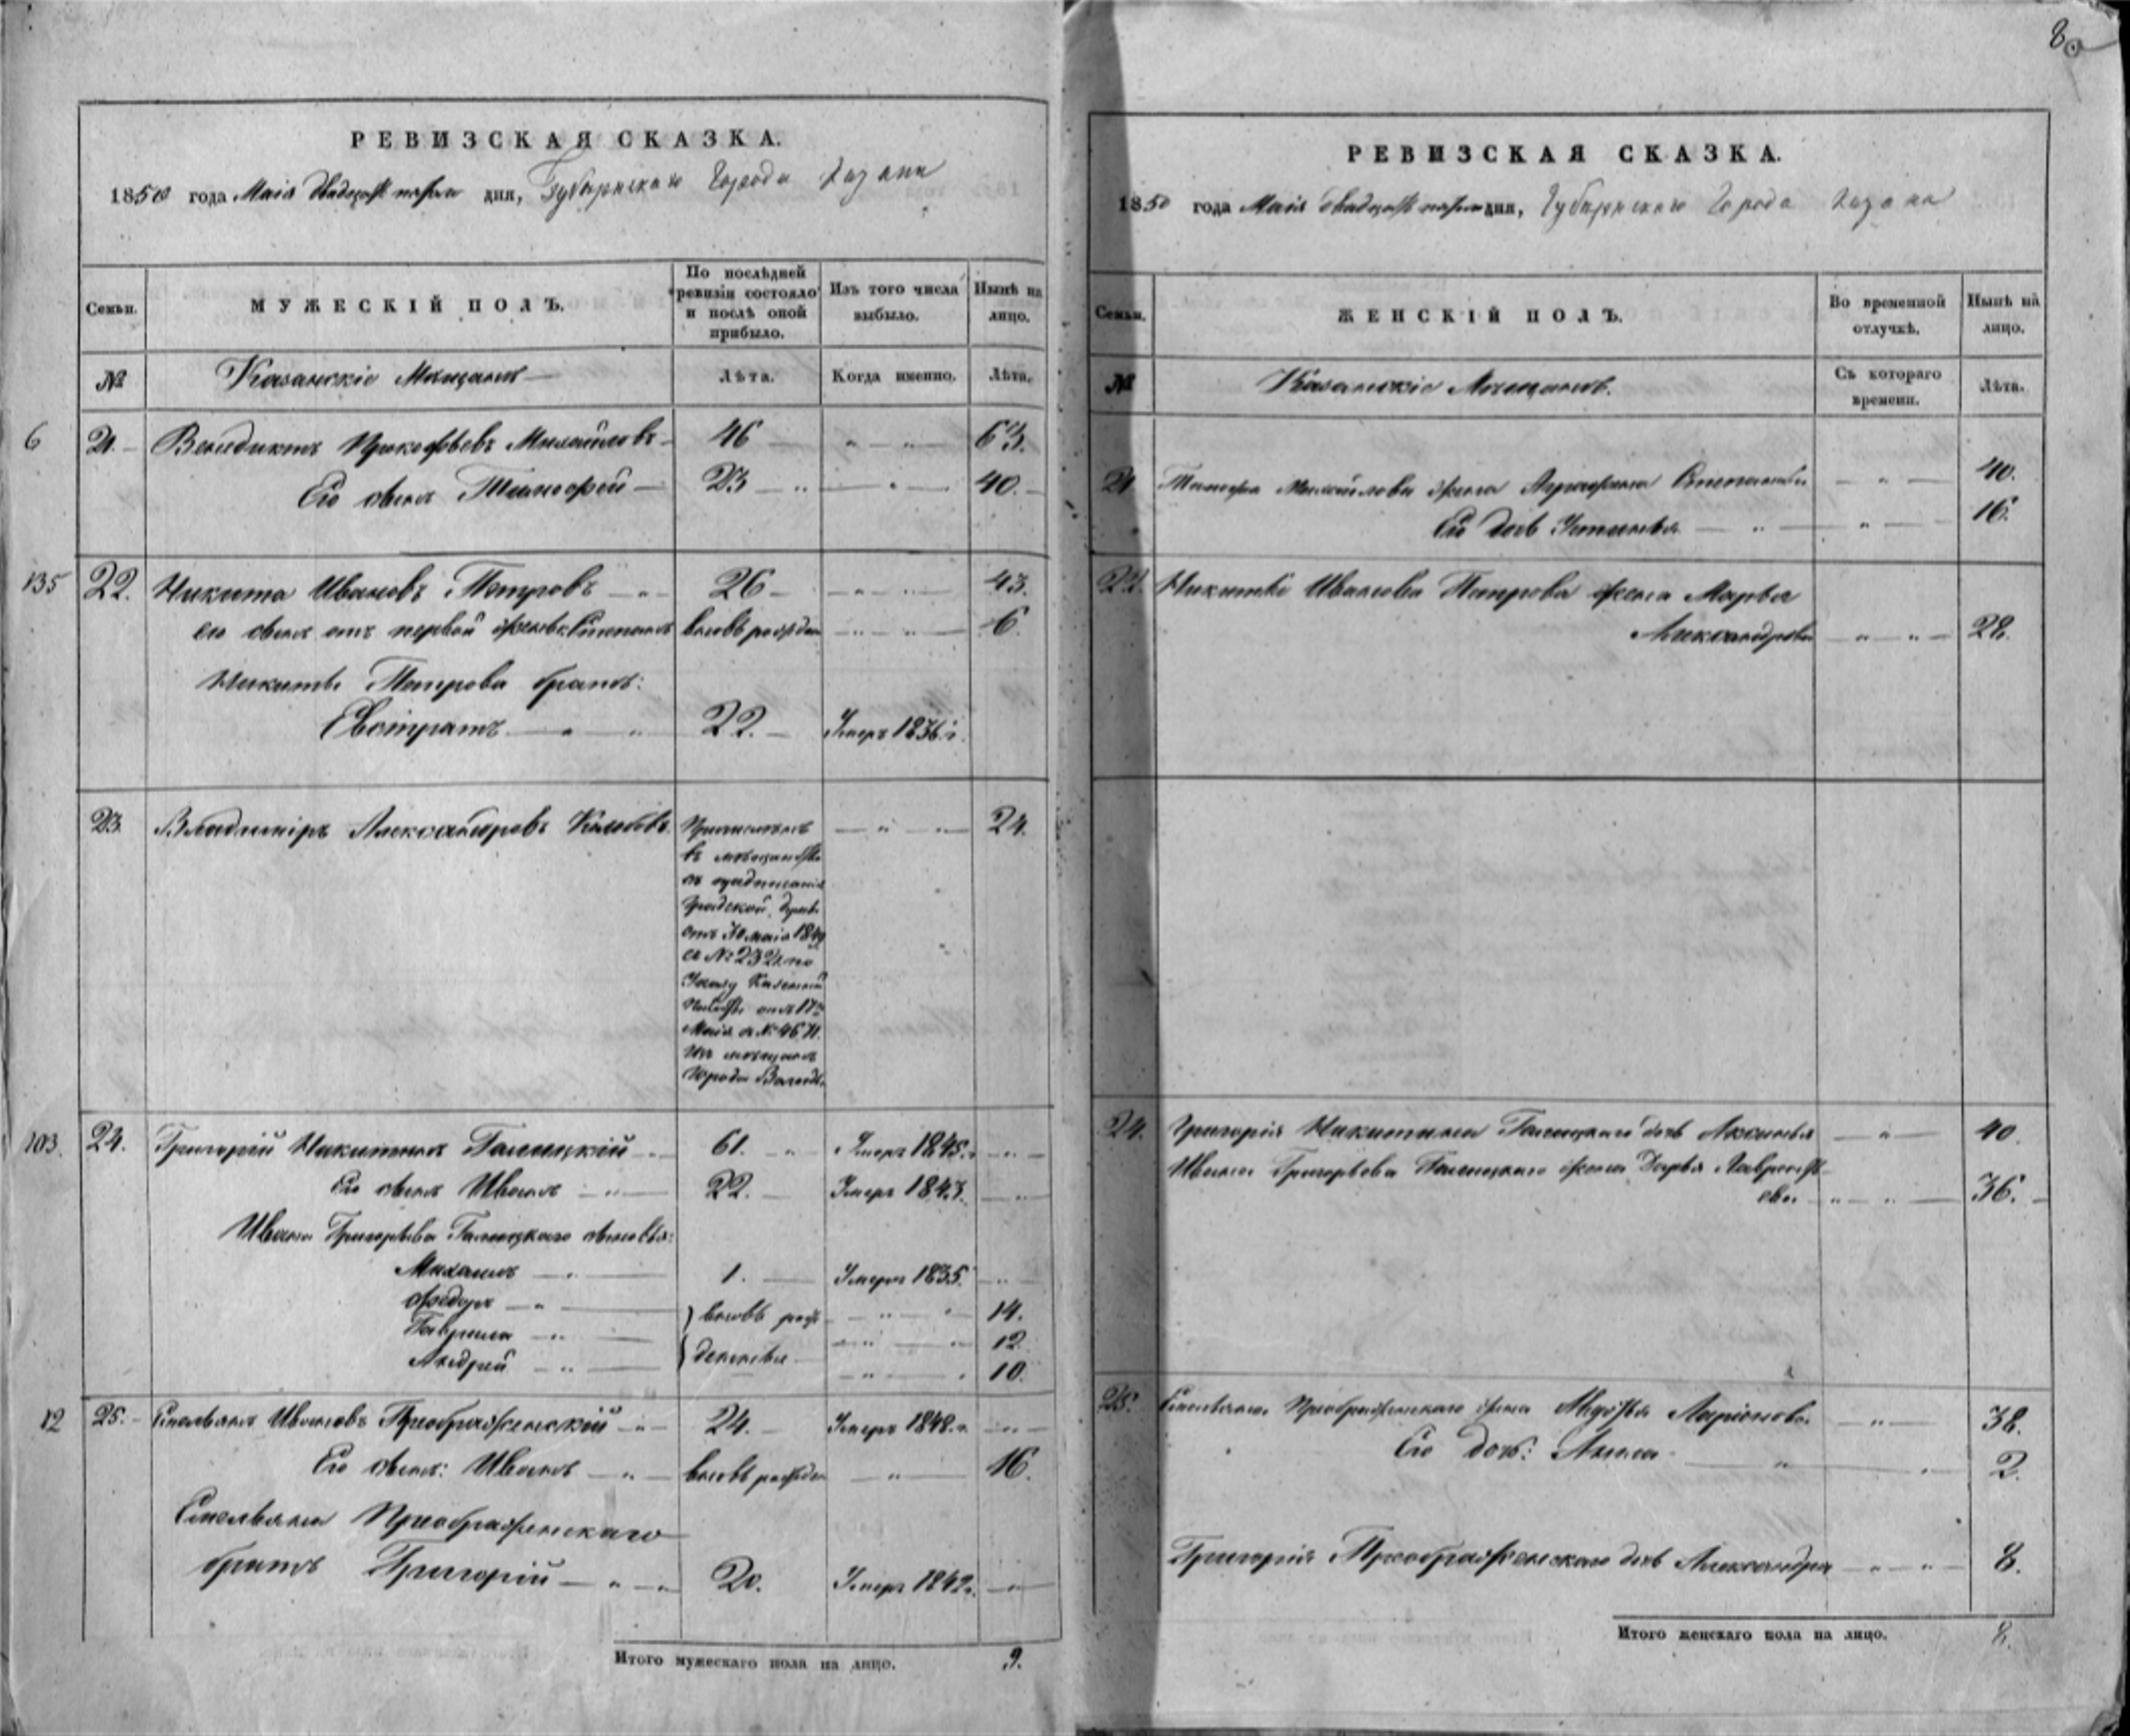 8
РЕВИЗСКАЯ СКАЗКА.
1850 года Маія двадцать дня, Губернскаго Города Казани
Семьи.
МУЖЕСКІЙ ПОЛЪ.
По послѣдней ревизіи состояло и послѣ оной прибыло.
Изъ того числа выбыло.
Нынѣ на лицо.
№
Казанскіе Мѣщане
Лѣта.
Когда именно.
Лѣта.
6 21. Венедиктъ Прокофьевъ Михайловъ 46 „ „ 63.
Его сынъ Тимофей 23 „ 40.
135 22. Никита Ивановъ Петровъ 26 „ „ 43.
его сынъ отъ первой жены Степанъ вновь рожден „ „ 6.
Никиты Петрова братъ:
Евстратъ „ „ 22. Умеръ 1836 г.
23. Владимиръ Александровъ 24.
Причисленъ
въ мѣщанство
Градской Думы
отъ 30 маія 1849
за № 2321 по
Указу Казенной
Палаты отъ 17го
Маія за № 4671.
Изъ мѣщанъ
города
103. 24. Григорій Никитинъ Галицкій 61. „ Умеръ 1845. „
Его сынъ Иванъ „ 22. Умеръ 1843. „
Ивана Григорьева Галицкаго сыновья:
Михаилъ 1. Умеръ 1835. „
Федоръ „ вновь рож „ 14.
Гаврила „ 12.
Андрей „ денные „ 10.
12 25. Емельянъ Ивановъ Преображенскій „ 24. Умеръ 1848. г „
Его сынъ: Иванъ „ вновь рожден „ 16.
Емельяна Преображенскаго
братъ Григорій „ „ 20. Умеръ 1842 г. „
Итого мужескаго пола на лицо. 9.
РЕВИЗСКАЯ СКАЗКА.
1850 года Маія двадцать дня, Губернскаго Города Казани
Семьи.
ЖЕНСКІЙ ПОЛЪ.
Во временной отлучкѣ.
Нынѣ на лицо.
№
Казанскіе Мѣщане.
Съ котораго времени.
Лѣта.
21 Тимофея Михайлова жена Аграфена Степанова „ 40.
Его дочь Устинья „ „ 16.
22. Никиты Иванова Петрова жена Марья
Александрова „ „ 28.
24. Григорія Никитина Галицкаго дочь Аксинья „ 40.
Ивана Григорьева Галицкаго жена Дарья Лавренть-
ева „ „ 36.
25. Емельяна Преображенскаго жена Авдотья Ларіонова „ 38.
Его дочь: Анна „ „ 2.
Григорія Преображенскаго дочь Александра „ „ 8.
Итого женскаго пола на лицо. 8.